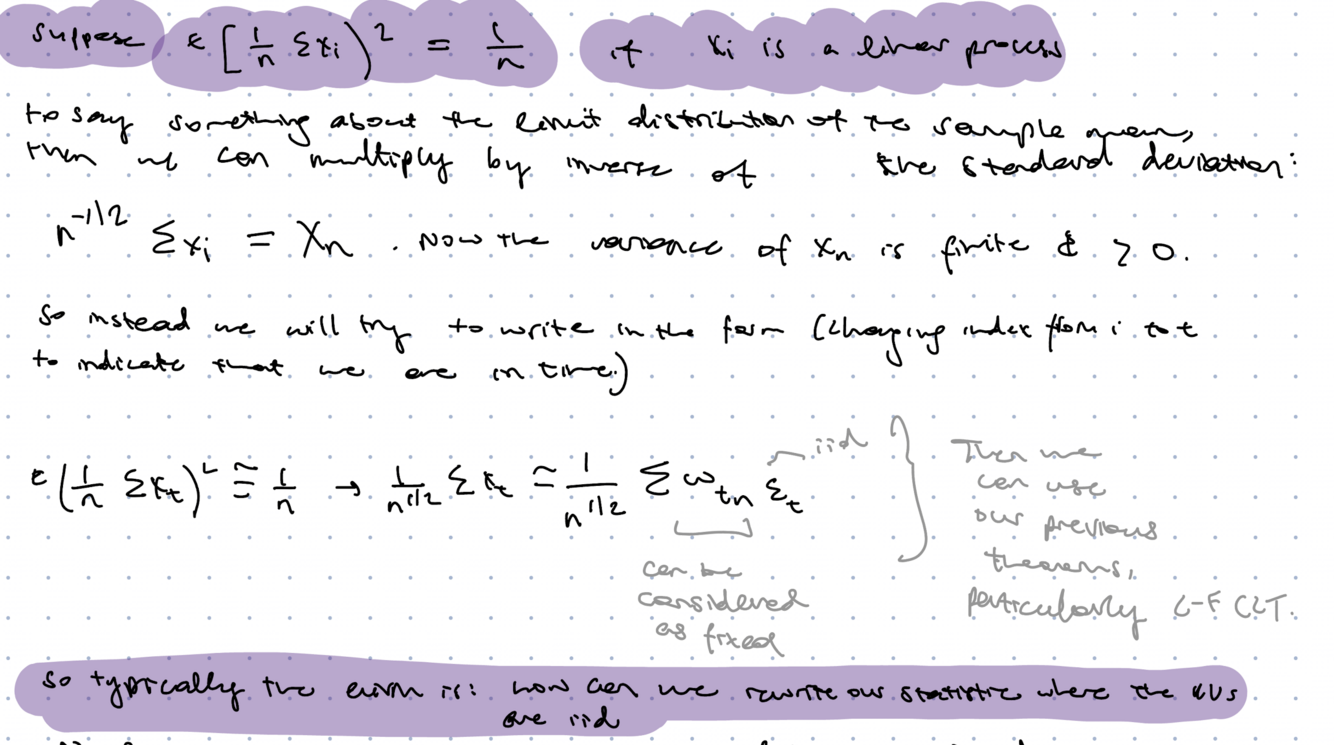 suppose E[1/n Σxi)² = 1/n if xi is a linear process
to say something about the limit distribution of the sample mean,
then we can multiply by inverse of the standard deviation:
n^-1/2 Σxi = Xn . Now the variance of Xn is finite & > 0.
So instead we will try to write in the form (changing index from i to t
to indicate that we are in time.)
E(1/n Σxt)² ≅ 1/n → 1/n^1/2 Σxt ≃ 1/n^1/2 Σ ω_tn ε_t
iid
can be
considered
as fixed
Then we
can use
our previous
theorems,
particularly L-F CLT.
so typically the aim is: how can we rewrite our statistic where the RVs
are iid